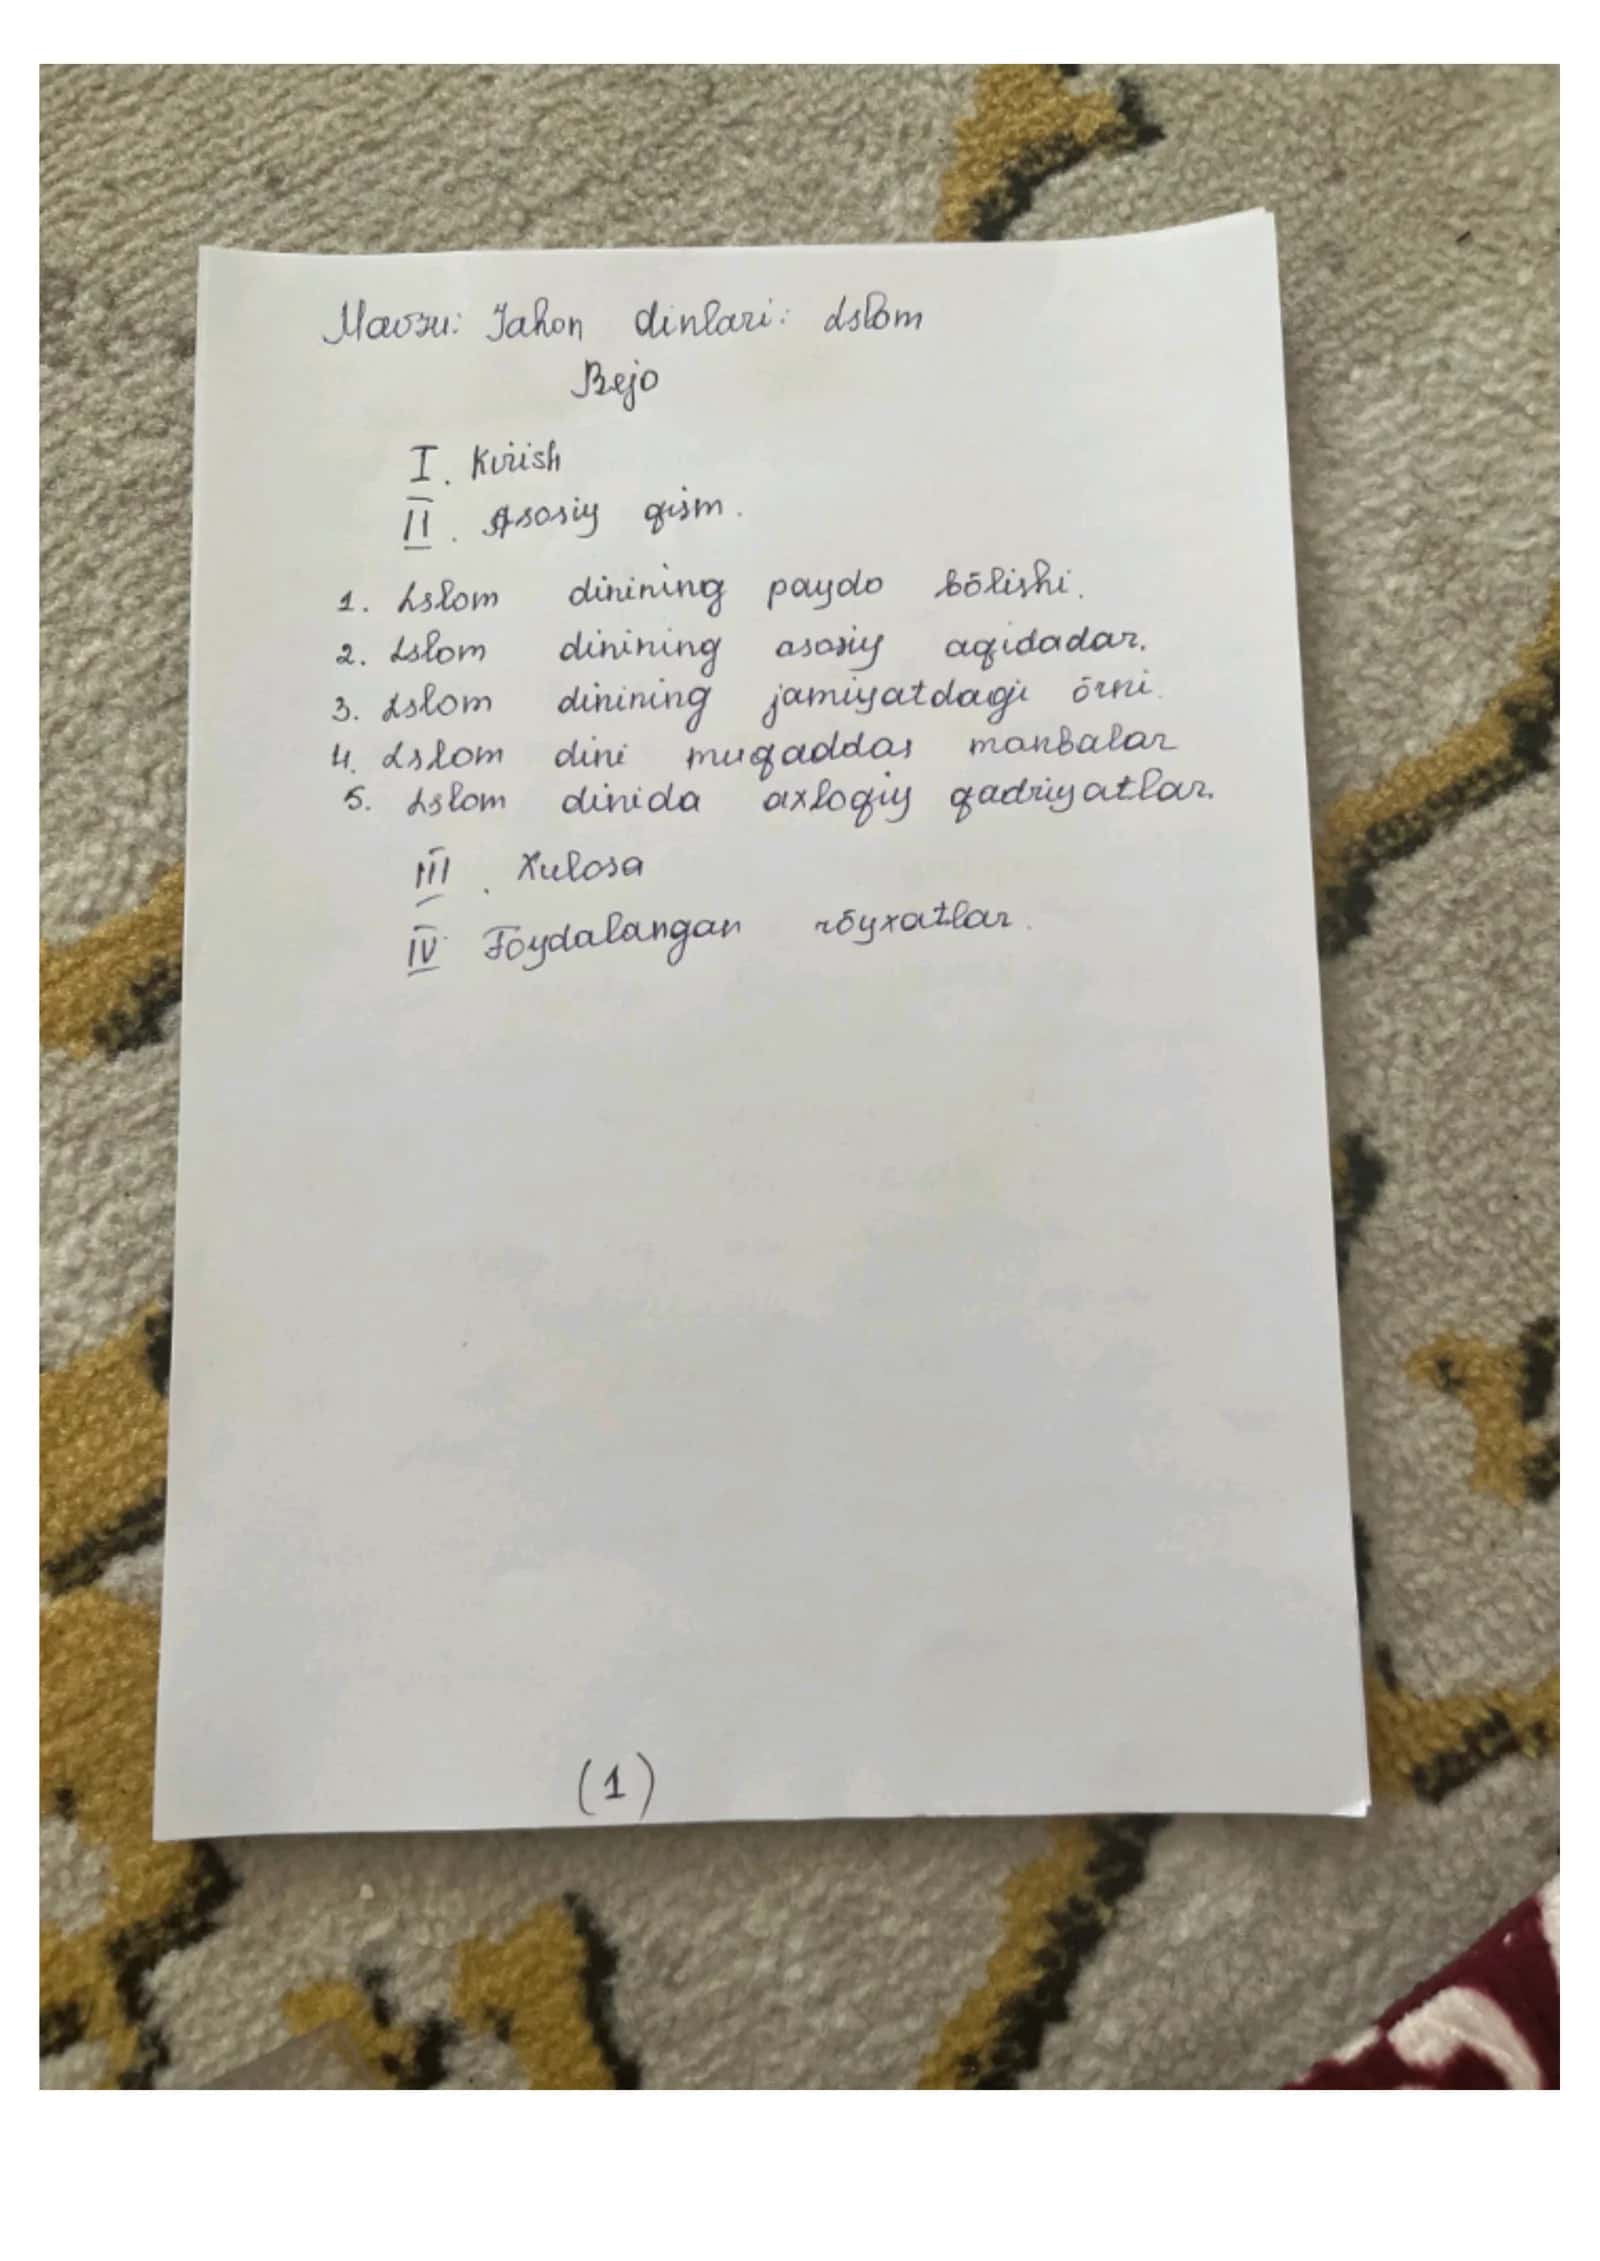 Mavzu: Jahon dinlari: Islom
Reja
I. Kirish
II. Asosiy qism.
1. Islom dinining paydo bōlishi.
2. Islom dinining asosiy aqidadar.
3. Islom dinining jamiyatdagi ōrni.
4. Islom dini muqaddas manbalar
5. Islom dinida axloqiy qadriyatlar.
III. Xulosa
IV Foydalangan rōyxatlar.
(1)